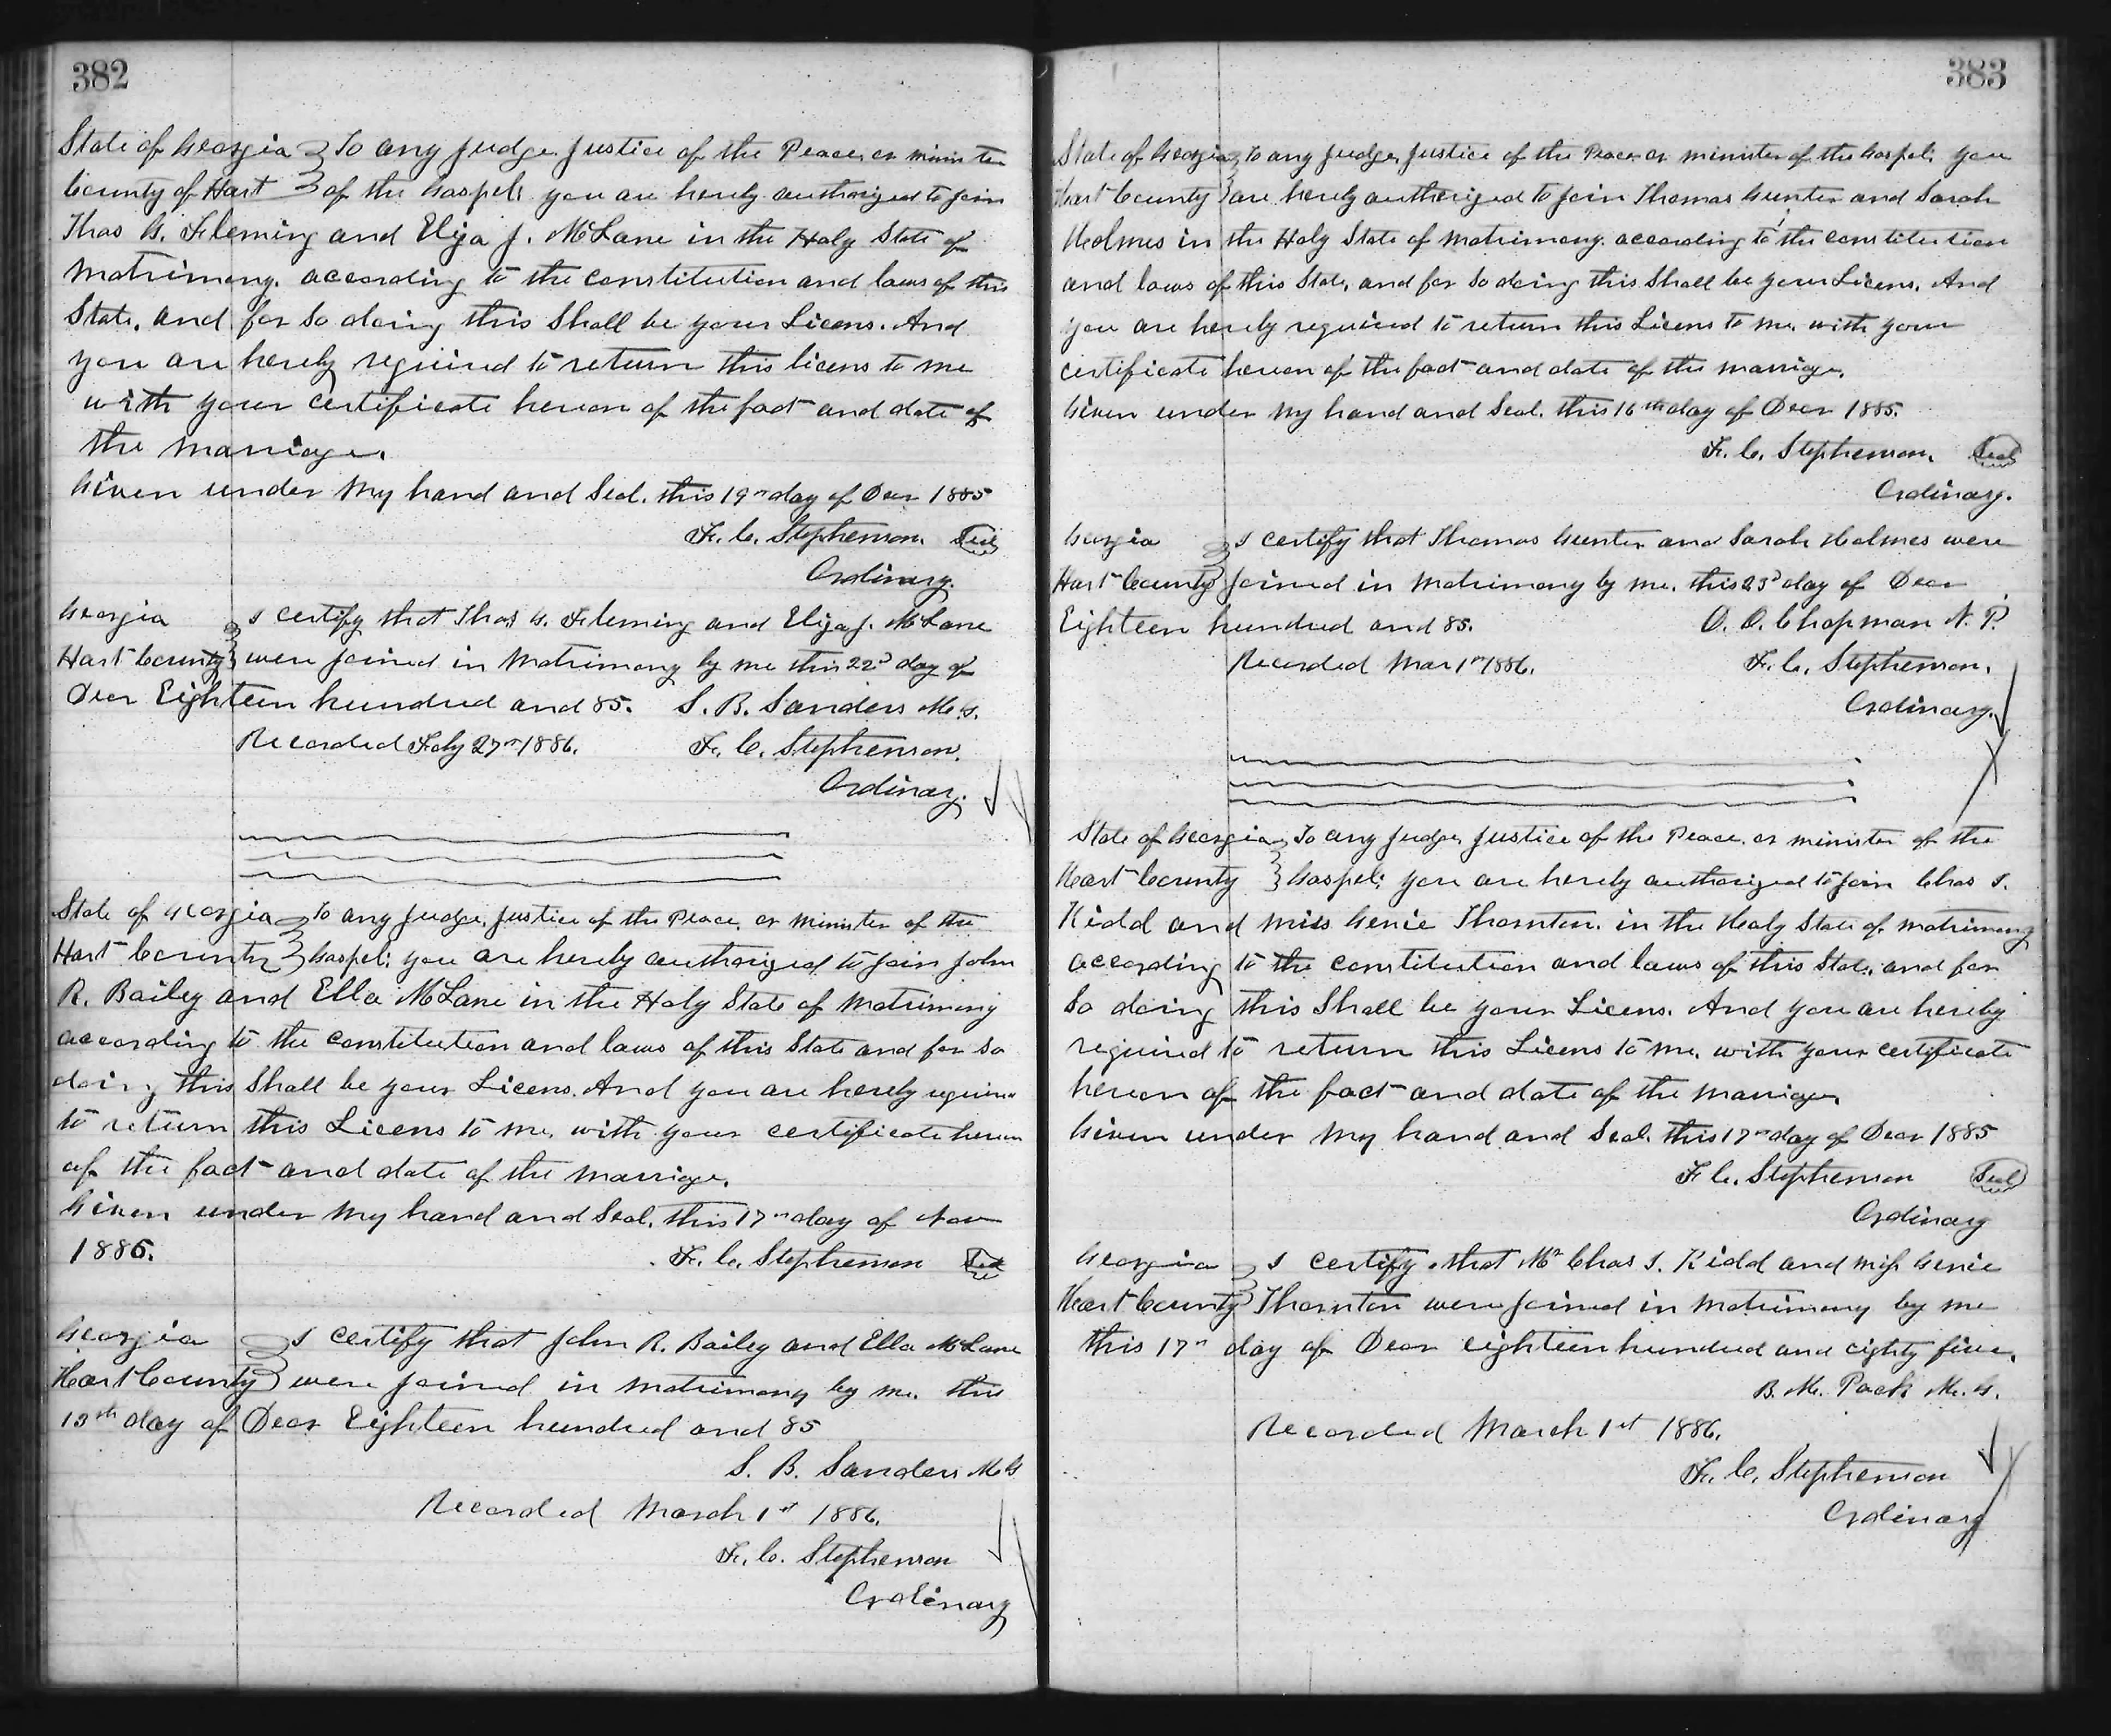 382
State of Georgia } To any Judge Justice of the Peace, or minister
County of Hart } of the Gospel; you are hereby authorized to join
Thos G. Fleming and Eliza J. McLane in the Holy State of
matrimony. according to the constitution and laws of this
State, and for so doing this Shall be your Licens. And
you are hereby required to return this licens to me
with your certificate hereon of the fact and date of
the marriage.
Given under my hand and Seal. this 19th day of Decr 1885
F. C. Stephenson. Seal
Ordinary.
Georgia } I certify that Thos G. Fleming and Eliza J. McLane
Hart County } were joined in matrimony by me this 22d day of
Decr Eighteen hundred and 85. S. B. Sanders M.G.
Recorded Feby 27th 1886. F. C. Stephenson.
Ordinary.
State of Georgia } To any Judge, Justice of the Peace, or minister of the
Hart County } Gospel; you are hereby authorized to join John
R. Bailey and Ella McLane in the Holy State of matrimony
according to the constitution and laws of this State and for so
doing this Shall be your Licens. And you are hereby
to return this Licens to me, with your certificate hereon
of the fact and date of the marriage.
Given under my hand and Seal. this 17th day of Nov
1885. F. C. Stephenson Seal
Georgia } I certify that John R. Bailey and Ella McLane
Hart County } were joined in matrimony by me. this
13th day of Decr Eighteen hundred and 85
S. B. Sanders M G
Recorded March 1st 1886.
F. C. Stephenson
Ordinary
383
State of Georgia } To any Judge, Justice of the Peace or minister of the Gospel; you
Hart County } are hereby authorized to join Thomas Gunter and Sarah
Holmes in the Holy State of matrimony. according to the constitution
and laws of this State, and for so doing this Shall be your Licens. And
you are hereby required to return this Licens to me, with your
certificate hereon of the fact and date of the marriage.
Given under my hand and Seal. this 16th day of Decr 1885.
F. C. Stephenson. Seal
Ordinary.
Georgia } I certify that Thomas Gunter and Sarah Holmes were
Hart County } joined in matrimony by me. this 23d day of Decr
Eighteen hundred and 85. O. O. Chapman N. P.
Recorded Mar 1st 1886. F. C. Stephenson.
Ordinary.
State of Georgia } To any Judge, Justice of the Peace. or minister of the
Hart County } Gospel; you are hereby authorized to join Chas I.
Kidd and miss Genie Thornton. in the Holy State of matrimony
according to the constitution and laws of this State, and for
so doing this Shall be your Licens. And you are hereby
required to return this Licens to me, with your certificate
hereon of the fact and date of the marriage.
Given under my hand and Seal. this 17th day of Decr 1885
F C. Stephenson Seal
Ordinary
Georgia } I certify that Mr Chas I. Kidd and miss Genie
Hart County } Thornton were joined in matrimony by me
this 17th day of Decr eighteen hundred and eighty five.
B. M. Pack M. G.
Recorded March 1st 1886.
F. C. Stephenson
Ordinary